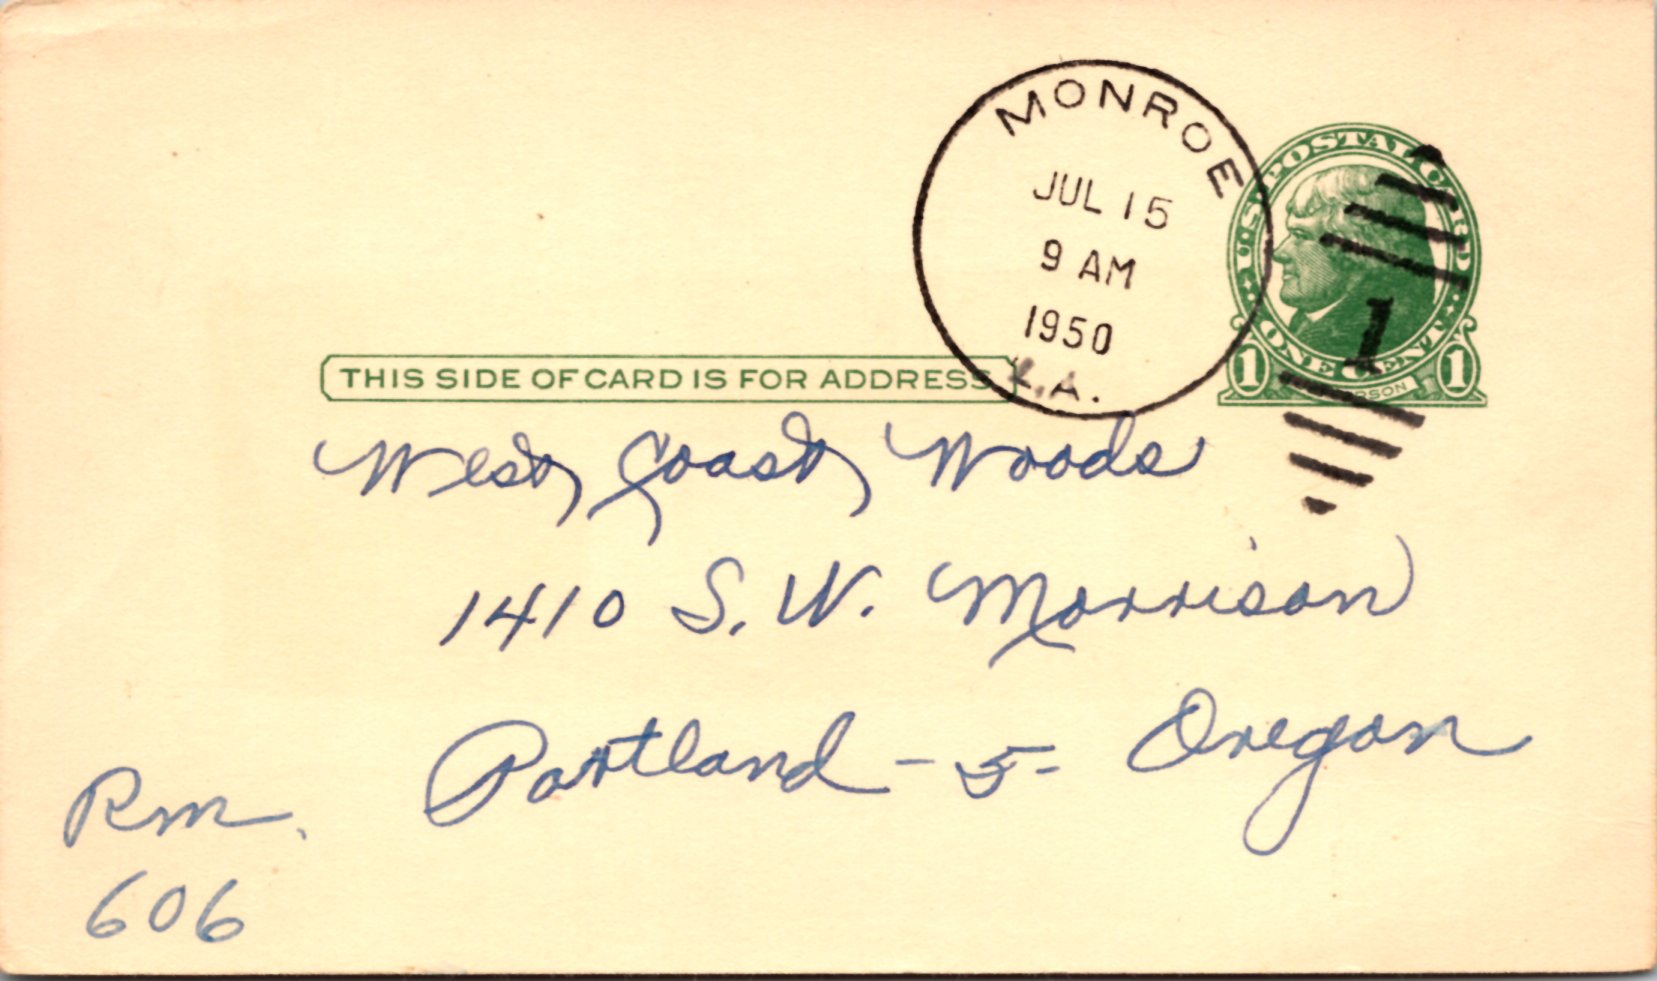 MONROE
JUL 15
9 AM
1950
LA.
1
U.S. POSTAL CARD
ONE CENT
1 1
THIS SIDE OF CARD IS FOR ADDRESS
West Coast Woods
1410 S.W. Morrison
Portland - 5 - Oregon
Rm.
606